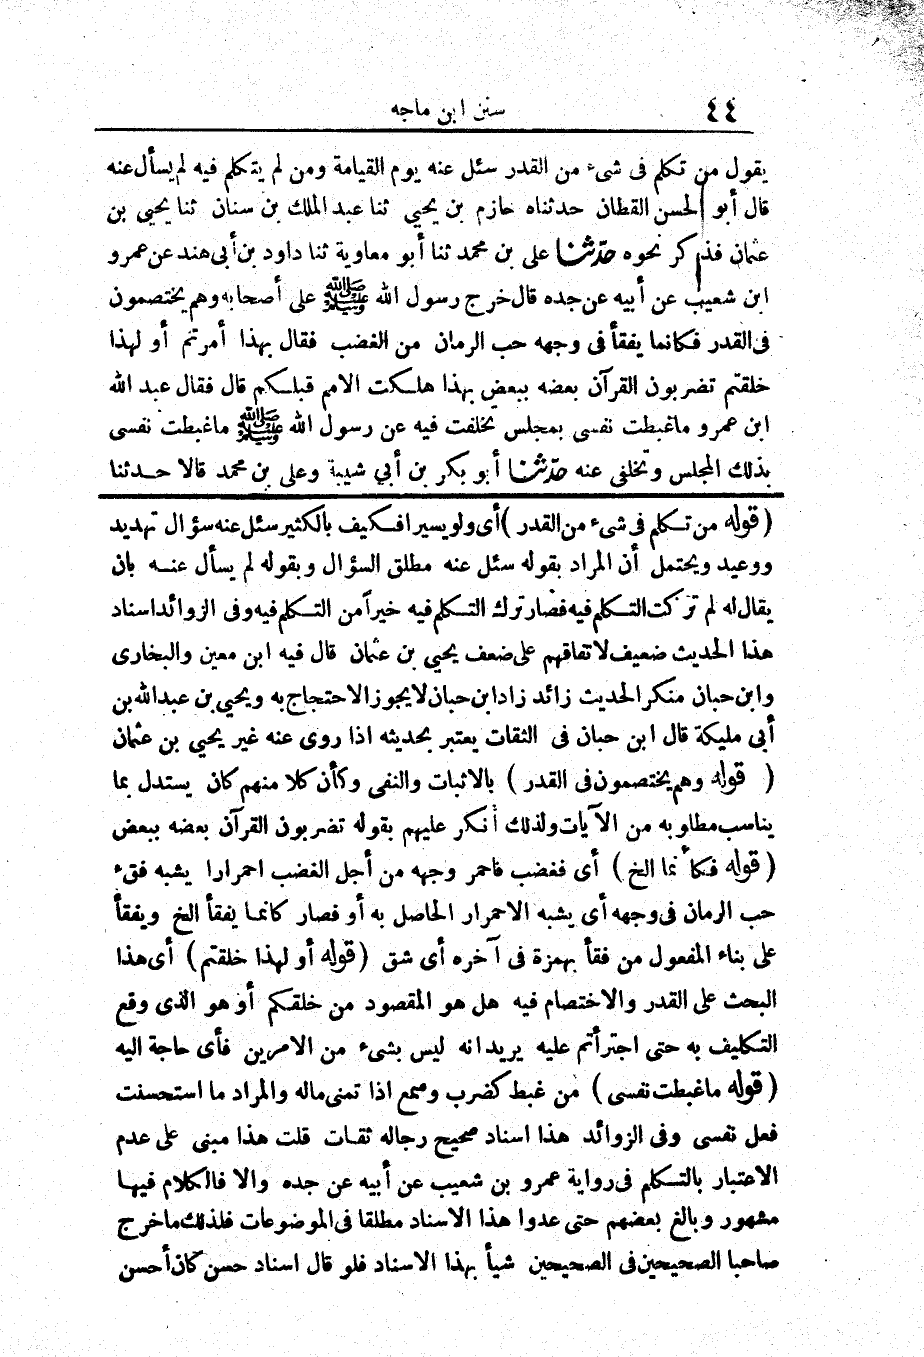 ٤٤ سنن ابن ماجه
يقول من تكلم فى شىء من القدر سئل عنه يوم القيامة ومن لم يتكلم فيه لم يسأل عنه
قال أبو الحسن القطان حدثناه حازم بن يحيى ثنا عبد الملك بن سنان ثنا يحيى بن
عثمان فذكر نحوه حدّثنا على بن محمد ثنا أبو معاوية ثنا داود بن أبى هند عن عمرو
ابن شعيب عن أبيه عن جده قال خرج رسول الله ﷺ على أصحابه وهم يختصمون
فى القدر فكانما يفقأ فى وجهه حب الرمان من الغضب فقال بهذا أمرتم أو لهذا
خلقتم تضربون القرآن بعضه ببعض بهذا هلكت الامم قبلكم قال فقال عبد الله
ابن عمرو ماغبطت نفسى بمجلس تخلفت فيه عن رسول الله ﷺ ماغبطت نفسى
بذلك المجلس وتخلفى عنه حدّثنا أبو بكر بن أبي شيبة وعلى بن محمد قالا حدثنا
( قوله من تكلم فى شىء من القدر ) أى ولو يسيرا فكيف بالكثير سئل عنه سؤال تهديد
ووعيد ويحتمل أن المراد بقوله سئل عنه مطلق السؤال وبقوله لم يسأل عنه بان
يقال له لم تركت التكلم فيه فصار ترك التكلم فيه خيراً من التكلم فيه وفى الزوائد اسناد
هذا الحديث ضعيف لاتفاقهم على ضعف يحيى بن عثمان قال فيه ابن معين والبخارى
وابن حبان منكر الحديث زائد زاد ابن حبان لا يجوز الاحتجاج به ويحيى بن عبد الله بن
أبى مليكة قال ابن حبان فى الثقات يعتبر بحديثه اذا روى عنه غير يحيى بن عثمان
( قوله وهم يختصمون فى القدر ) بالاثبات والنفى وكأن كلا منهم كان يستدل بما
يناسب مطلوبه من الآيات ولذلك أنكر عليهم بقوله تضربون القرآن بعضه ببعض
( قوله فكأنما الخ ) أى فغضب فاحمر وجهه من أجل الغضب احمرارا يشبه فقء
حب الرمان فى وجهه أى يشبه الاحمرار الحاصل به أو فصار كانما يفقأ الخ ويفقأ
على بناء المفعول من فقأ بهمزة فى آخره أى شق ( قوله أو لهذا خلقتم ) أى هذا
البحث على القدر والاختصام فيه هل هو المقصود من خلقكم أو هو الذى وقع
التكليف به حتى اجترأتم عليه يريد انه ليس بشىء من الامرين فأى حاجة اليه
( قوله ماغبطت نفسى ) من غبط كضرب وسمع اذا تمنى ماله والمراد ما استحسنت
فعل نفسى وفى الزوائد هذا اسناد صحيح رجاله ثقات قلت هذا مبنى على عدم
الاعتبار بالتكلم فى رواية عمرو بن شعيب عن أبيه عن جده والا فالكلام فيها
مشهور وبالغ بعضهم حتى عدوا هذا الاسناد مطلقا فى الموضوعات فلذلك ماخرج
صاحبا الصحيحين فى الصحيحين شيأ بهذا الاسناد فلو قال اسناد حسن كان أحسن